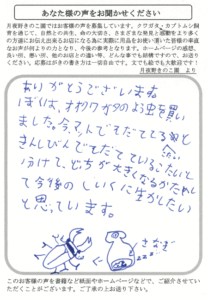 あなた様の声をお聞かせください
月夜野きのこ園ではお客様の声を募集しています。クワガタ・カブトムシ飼
育を通じて、自然との共生、命の大切さ、さまざまな発見と感動をより多く
の方達にお伝え出来るお店になる為に実際に用品をお使い頂いた皆様の率直
なお声が何よりの力となり、今後の参考となります。ホームページの感想、
良い所、悪い所、他のお店との違い等、どんな事でも結構ですので、お送り
ください。応募はがきの書き方は一切自由です。文でも絵でも大歓迎です!
月夜野きのこ園 より
ありがとうございますね
ぼくは、オオクワガタのよう虫を買い
ました。今ようしてそだててるうちと
きんしびんでそだてているうち、たいと
分けて、どっちが大きくなるかためし
て今後のしいくに生かしたい
と思っています。
さなぎ
このお客様の声を書籍など紙面やホームページなどで、ご紹介させてい
ただくことがございます。ご了承の上お送り下さい。